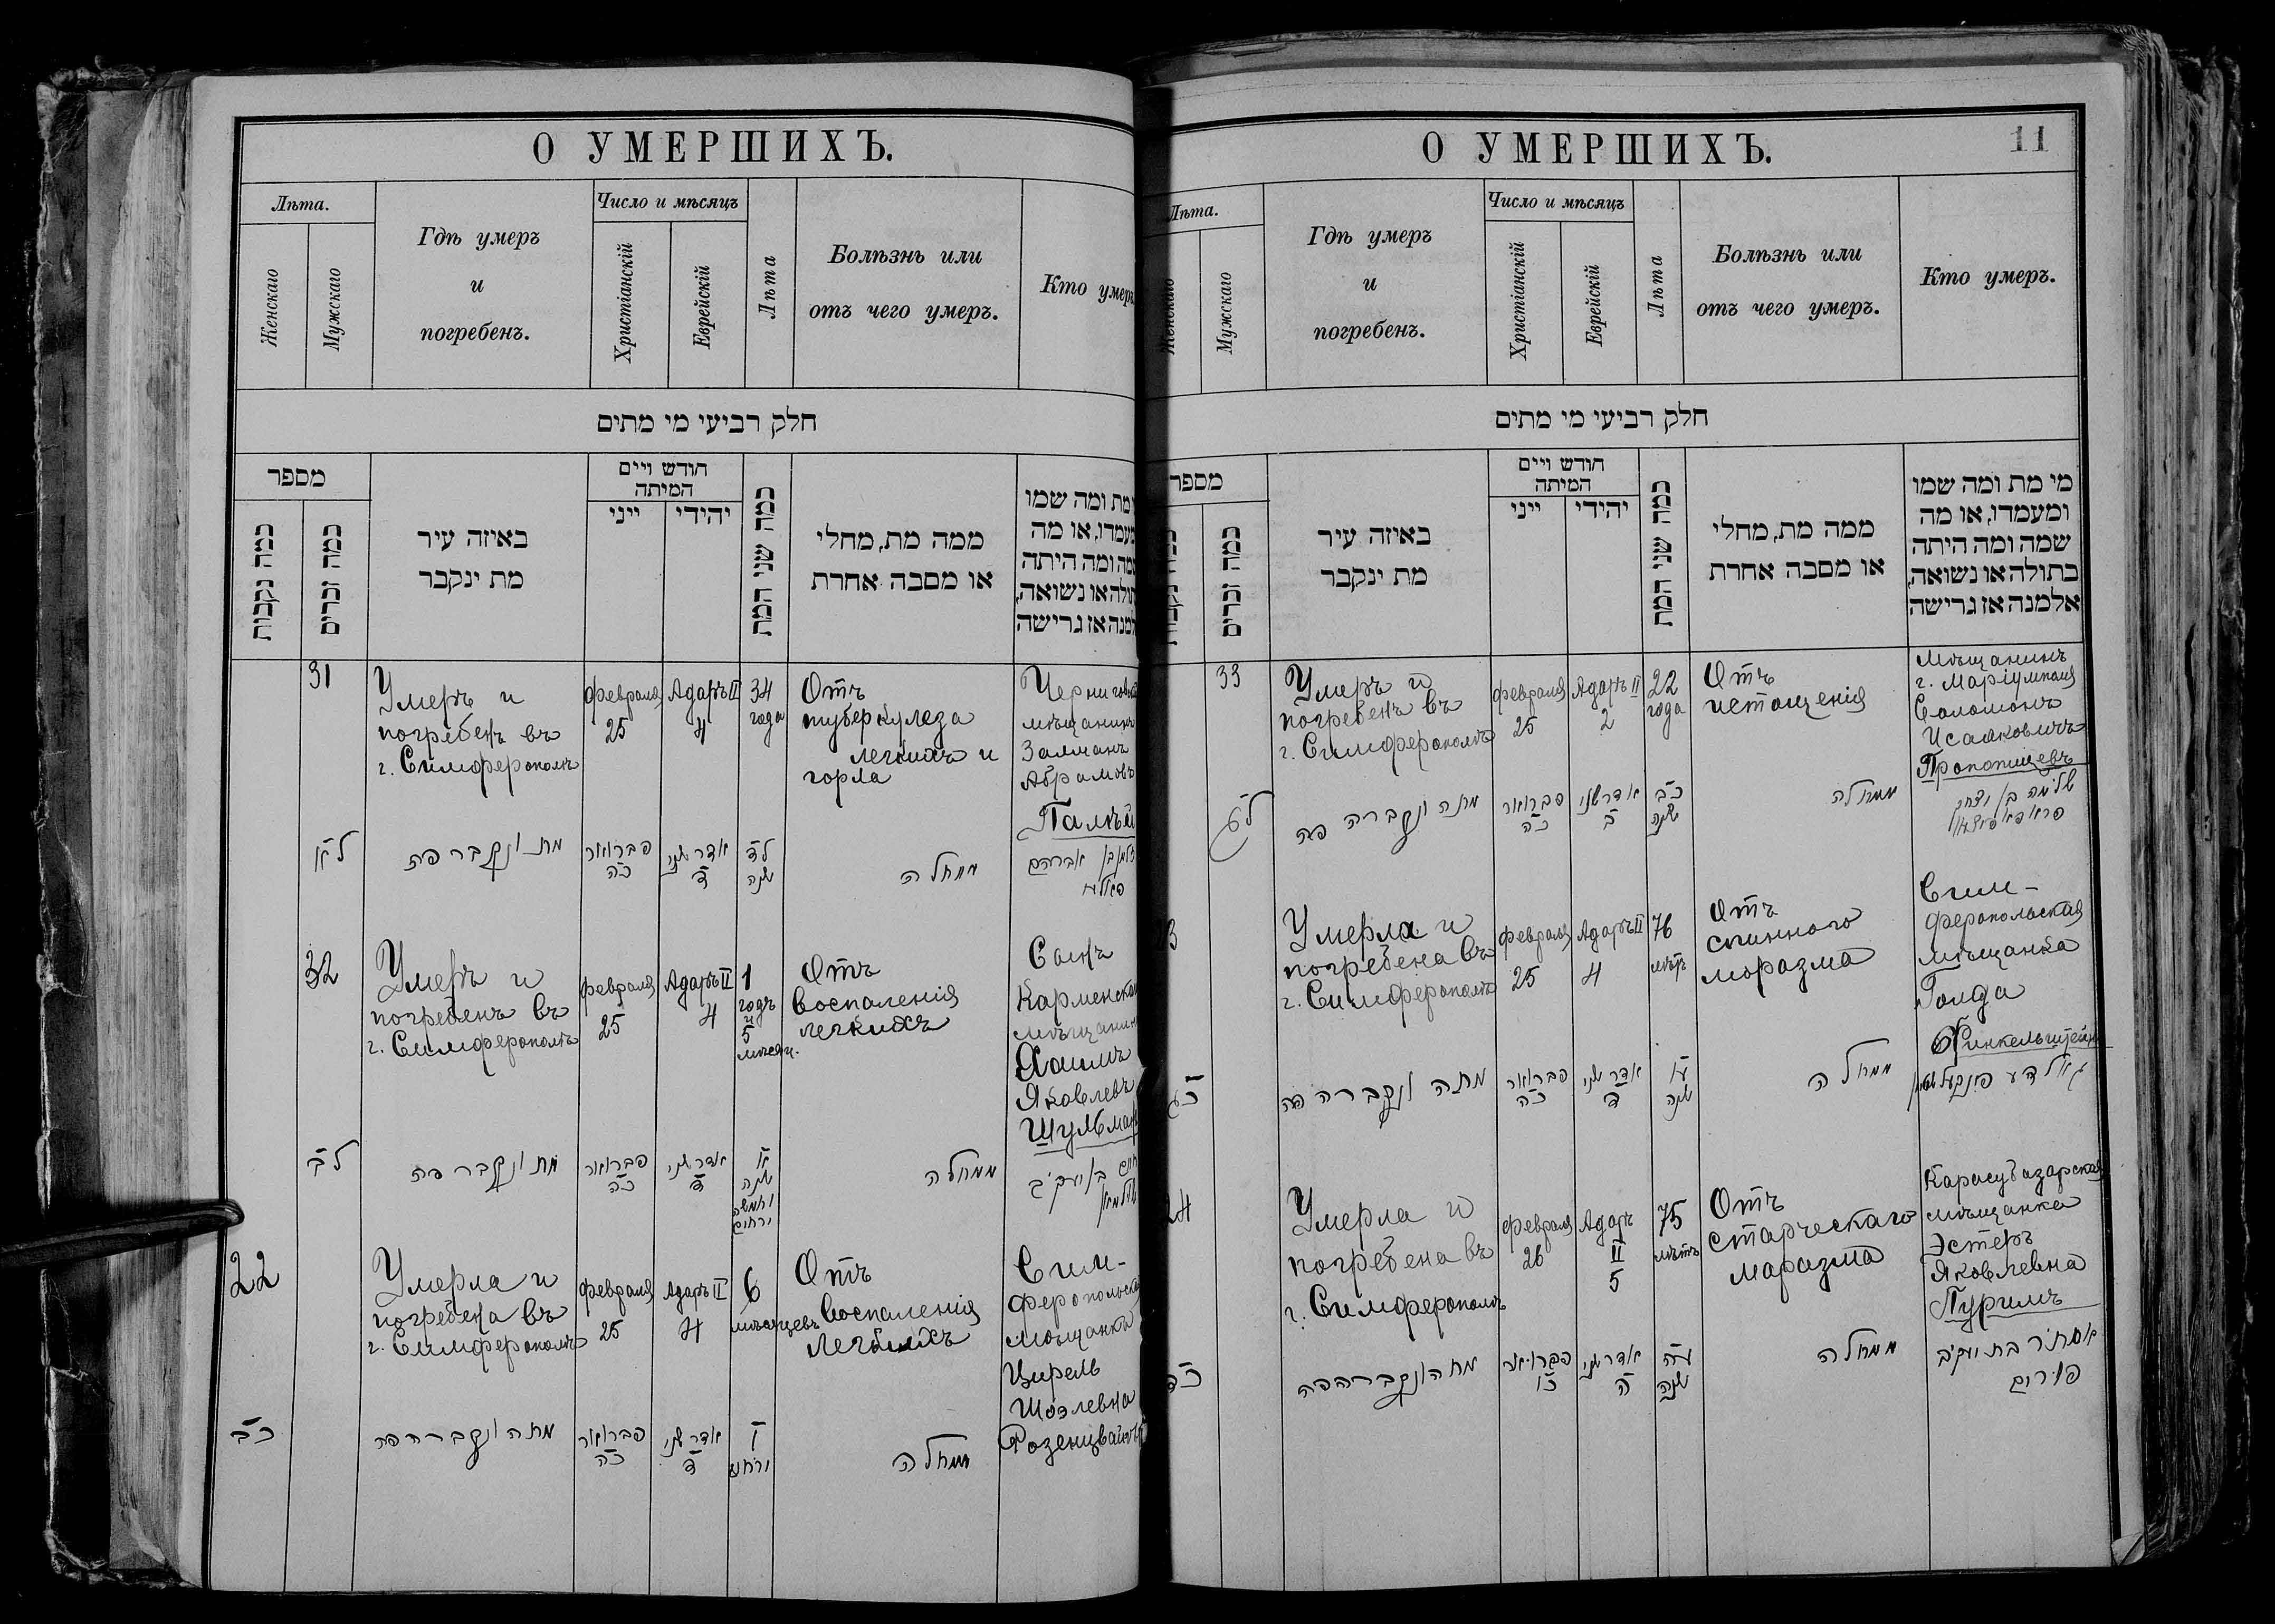 О УМЕРШИХЪ.
Лѣта.
Женскаго
Мужскаго
Гдѣ умеръ
и
погребенъ.
Число и мѣсяцъ
Христіанскій
Еврейскій
Лѣта
Болѣзнь или
отъ чего умеръ.
Кто умеръ
חלק רביעי מי מתים
מספר
כמה נקבות
כמה זכרים
באיזה עיר
מת ינקבר
חודש ויים
המיתה
ייני
יהידי
כמה שני המת
ממה מת, מחלי
או מסבה אחרת
מת ומה שמו
מעמדו, או מה
שמה ומה היתה
תולה או נשואה,
למנה או גרישה
31
Умеръ и
погребенъ въ
г. Симферополѣ
Февраля
25
Адаръ II
4
34
года
Отъ
туберкулеза
легкихъ и
горла
Чернигов
мѣщанинъ
Залманъ
Абрамовъ
לא
מת ונקבר פה
פברואר
כה
אדר שני
ד
לד
שנה
ממחלה
זלמן בן אברהם
32
Умеръ и
погребенъ въ
г. Симферополѣ
Февраля
25
Адаръ II
4
1
годъ
и
5
мѣсяц.
Отъ
воспаленія
легкихъ
Сынъ
мѣщанин
Хаимъ
Яковлевъ
Шульман
לב
מת ונקבר פה
פברואר
כה
אדר שני
ד
א
שנה
וחמשה
ירחים
ממחלה
חיים בן יעקב
שולמאן
22
Умерла и
погребена въ
г. Симферополѣ
Февраля
25
Адаръ II
4
6
мѣсяцевъ
Отъ
воспаленія
легкихъ
Сим-
феропольская
мѣщанка
Цирель
Розенцвайгъ
כב
מתה ונקברה פה
פברואר
כה
אדר שני
ד
ו
ממחלה
О УМЕРШИХЪ.
11
Лѣта.
Женскаго
Мужскаго
Гдѣ умеръ
и
погребенъ.
Число и мѣсяцъ
Христіанскій
Еврейскій
Лѣта
Болѣзнь или
отъ чего умеръ.
Кто умеръ.
חלק רביעי מי מתים
מספר
כמה נקבות
כמה זכרים
באיזה עיר
מת ינקבר
חודש ויים
המיתה
ייני
יהידי
כמה שני המת
ממה מת, מחלי
או מסבה אחרת
מי מת ומה שמו
ומעמדו, או מה
שמה ומה היתה
בתולה או נשואה,
אלמנה או גרישה
33
Умеръ и
погребенъ въ
г. Симферополѣ
Февраля
25
Адаръ II
2
22
года
Отъ
истощенія
мѣщанинъ
г. Маріумполя
Соломонъ
Исааковичъ
לג
מתה ונקברה פה
פברואר
כה
אדר שני
ב
כב
שנה
ממחלה
שלמה בן יצחק
3
Умерла и
погребена въ
г. Симферополѣ
Февраля
25
Адаръ II
4
76
лѣтъ
Отъ
спинного
моразма
Сим-
феропольская
мѣщанка
Голда
Финкельштейнъ
כג
מתה ונקברה פה
פברואר
כה
אדר שני
ד
עו
שנה
ממחלה
גאלדע פינקעלשטיין
24
Умерла и
погребена въ
г. Симферополѣ
Февраля
26
Адаръ
II
5
75
лѣтъ
Отъ
старческаго
маразма
Карасубазарская
мѣщанка
Эстеръ
Яковлевна
Пуримъ
כד
מתה ונקברה פה
פברואר
כו
אדר שני
ה
עה
שנה
ממחלה
אסתר בת יעקב
פורים